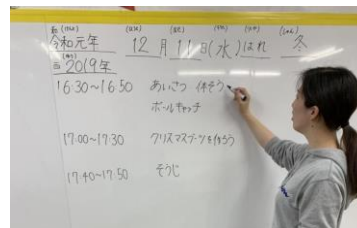 令和元年 12月11日(水) はれ 冬
西 2019年
16:30~16:50 あいさつ 体そう
ボールキャッチ
17:00~17:30 クリスマスブーツを作ろう
17:40~17:50 そうじ